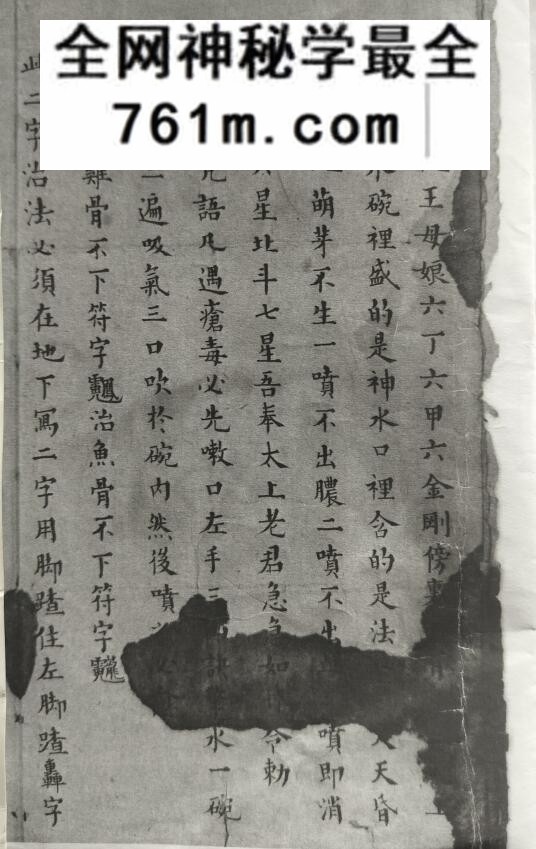 全网神秘学最全
761m.com
王母娘六丁六甲六金剛傍
水碗裡盛的是神水口裡含的是法 天昏
萌芽不生一噴不出膿二噴不出 噴即消
星北斗七星吾奉太上老君急急如 令勅
語凡遇瘡毒必先嗽口左手三 訣 水一碗
遍吸氣三口吹於碗內然後噴
雞骨不下符字 治魚骨不下符字
此二字治法必須在地下寫二字用脚踏住左脚踏轟字